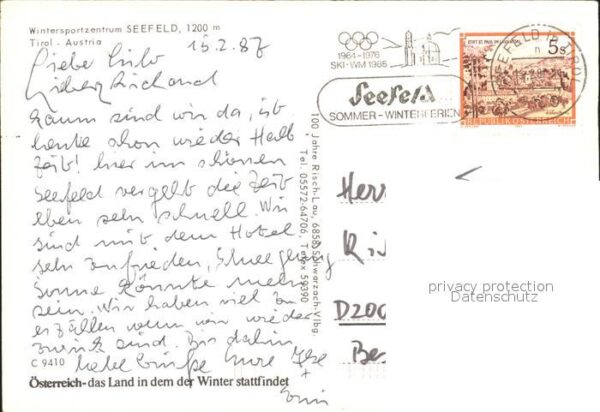 Wintersportzentrum SEEFELD, 1200 m
Tirol - Austria
15.2.87
Liebe
Lieber Richard
Kaum sind wir da, ist
heute schon wieder Halb
zeit! hier im schönen
Seefeld vergeht die Zeit
eben sehr schnell. Wir
sind mit dem Hotel
sehr zufrieden, Schnee genug
Sonne könnte mehr
sein. Wir haben viel zu
erzählen wenn wir wieder
zurück sind. Bis dahin
liebe Grüße Eure Ilse
+
C 9410
Österreich-das Land in dem der Winter stattfindet
100 Jahre Risch-Lau, 6858 Schwarzach-Vlbg.
Tel. 05572-64706, Telex 59390
1964-1976
SKI-WM 1985
Seefeld
SOMMER-WINTERFERIEN
SEEFELD IN TIROL
STIFT ST. PAUL IM LAVANTTAL
5s
REPUBLIK ÖSTERREICH
Herr
Ri
D200
Be
privacy protection
Datenschutz